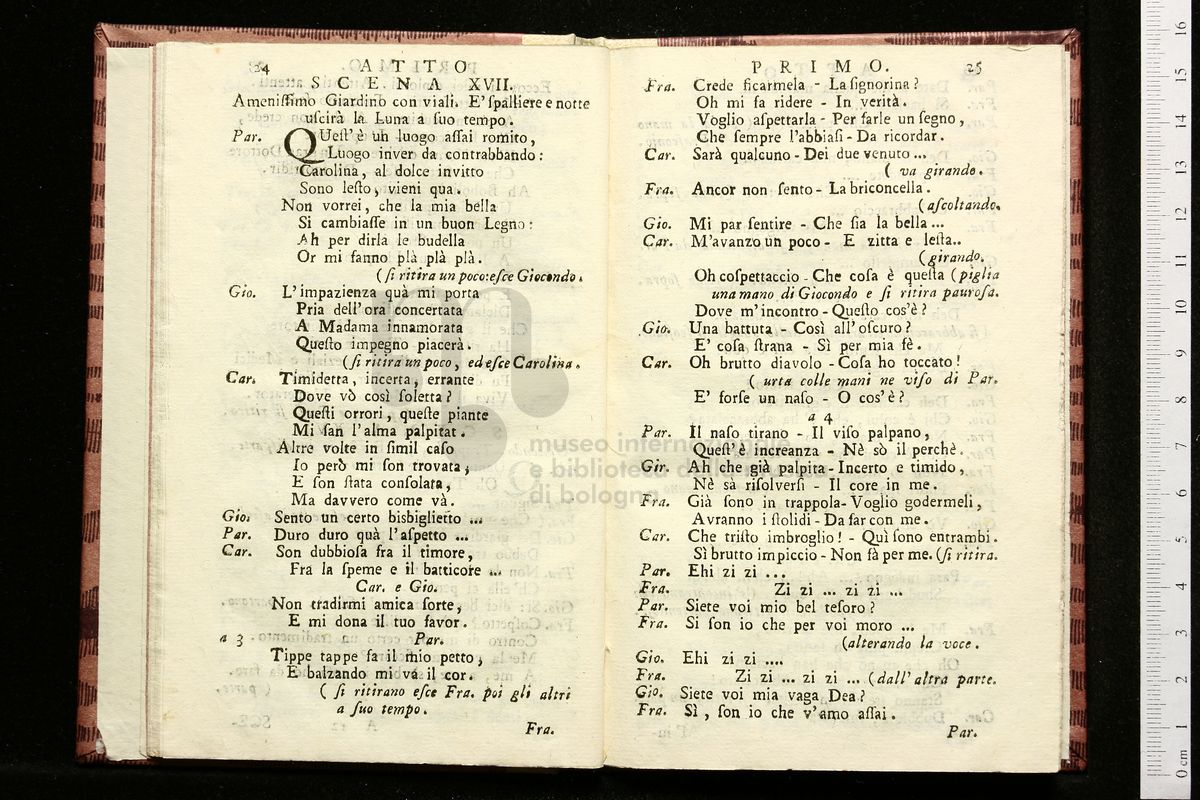 24 ATITO
SCENA XVII.
Ameniſſimo Giardino con viali. E' ſpalliere e notte
uſcirà la Luna a ſuo tempo.
Par. QUeſt' è un luogo aſſai romito,
Luogo inver da contrabbando:
Carolina, al dolce invitto
Sono leſto, vieni qua.
Non vorrei, che la mia bella
Si cambiaſſe in un buon Legno:
Ah per dirla le budella
Or mi fanno plà plà plà.
(ſi ritira un poco: eſce Giocondo.
Gio. L'impazienza quà mi porta
Pria dell'ora concertata
A Madama innamorata
Queſto impegno piacerà.
(ſi ritira un poco, ed eſce Carolina.
Car. Timidetta, incerta, errante
Dove vò così ſoletta?
Queſti orrori, queſte piante
Mi fan l'alma palpitat.
Altre volte in ſimil caſo
Io però mi ſon trovata,
E ſon ſtata conſolata,
Ma davvero come và.
Gio. Sento un certo bisbiglietto ...
Par. Duro duro quà l'aſpetto ...
Car. Son dubbioſa fra il timore,
Fra la ſpeme e il batticore ...
Car. e Gio.
Non tradirmi amica ſorte,
E mi dona il tuo favor.
a 3 Par.
Tippe tappe fa il mio petto,
E balzando mi và il cor.
( ſi ritirano eſce Fra. poi gli altri
a ſuo tempo.
Fra.
PRIMO. 25
Fra. Crede ficarmela - La ſignorina?
Oh mi fa ridere - In verità.
Voglio aſpettarla - Per farle un ſegno,
Che ſempre l'abbiaſi - Da ricordar.
Car. Sarà qualcuno - Dei due venuto ...
( va girando.
Fra. Ancor non ſento - La briconcella.
(aſcoltando.
Gio. Mi par ſentire - Che ſia la bella ...
Car. M'avanzo un poco - E zitta e leſta..
(girando.
Oh coſpettaccio - Che coſa è queſta (piglia
una mano di Giocondo e ſi ritira pauroſa.
Dove m'incontro - Queſto cos'è?
Gio. Una battuta - Così all'oſcuro?
E' coſa ſtrana - Sì per mia fè.
Car. Oh brutto diavolo - Coſa ho toccato!
( urta colle mani ne viſo di Par.
E' forſe un naſo - O cos'è?
a 4
Par. Il naſo tirano - Il viſo palpano,
Queſt'è increanza - Nè sò il perchè.
Gir. Ah che già palpita - Incerto e timido,
Nè sà riſolverſi - Il core in me.
Fra. Già ſono in trappola - Voglio godermeli,
Avranno i ſtolidi - Da far con me.
Car. Che triſto imbroglio! - Quì ſono entrambi.
Sì brutto impiccio - Non fà per me. (ſi ritira.
Par. Ehi zi zi ...
Fra. Zi zi ... zi zi ...
Par. Siete voi mio bel teſoro?
Fra. Si ſon io che per voi moro ...
(alterando la voce.
Gio. Ehi zi zi ....
Fra. Zi zi ... zi zi ... (dall'altra parte.
Gio. Siete voi mia vaga Dea?
Fra. Sì, ſon io che v'amo aſſai.
Par.
museo internazionale
e biblioteca della musica
di bologna
16
15
14
13
12
11
10
9
8
7
6
5
4
3
2
1
0 cm